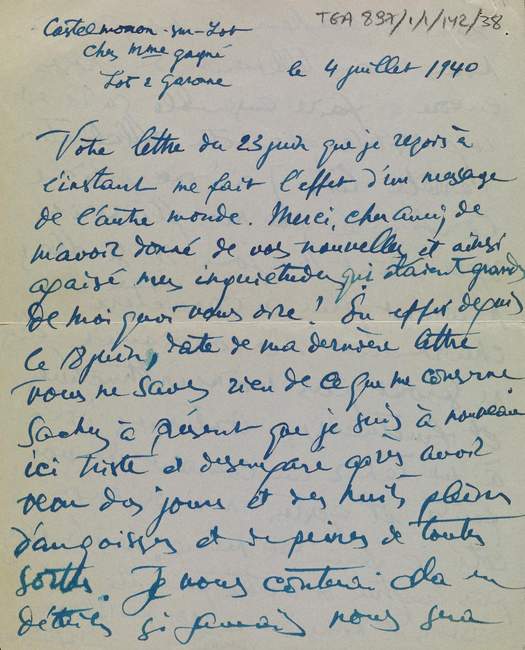 TGA 897/1/1/142/38
Castelmoron-sur-Lot
chez Mme Gagné
Lot & Garonne
le 4 juillet 1940
Votre lettre du 23 juin que je reçois à
l'instant me fait l'effet d'un message
de l'autre monde. Merci, cher ami, de
m'avoir donné de vos nouvelles et ainsi
apaisé mes inquiétudes qui étaient grandes
De moi quoi vous dire! En effet depuis
le 8 juin, date de ma dernière lettre
vous ne savez rien de ce que me concerne
Sachez à présent que je suis à nouveau
ici triste et désemparé après avoir
vécu des jours et des nuits pleins
d'angoisses et de peines de toutes
sortes. Je vous conterai cela en
détails si jamais nous sera